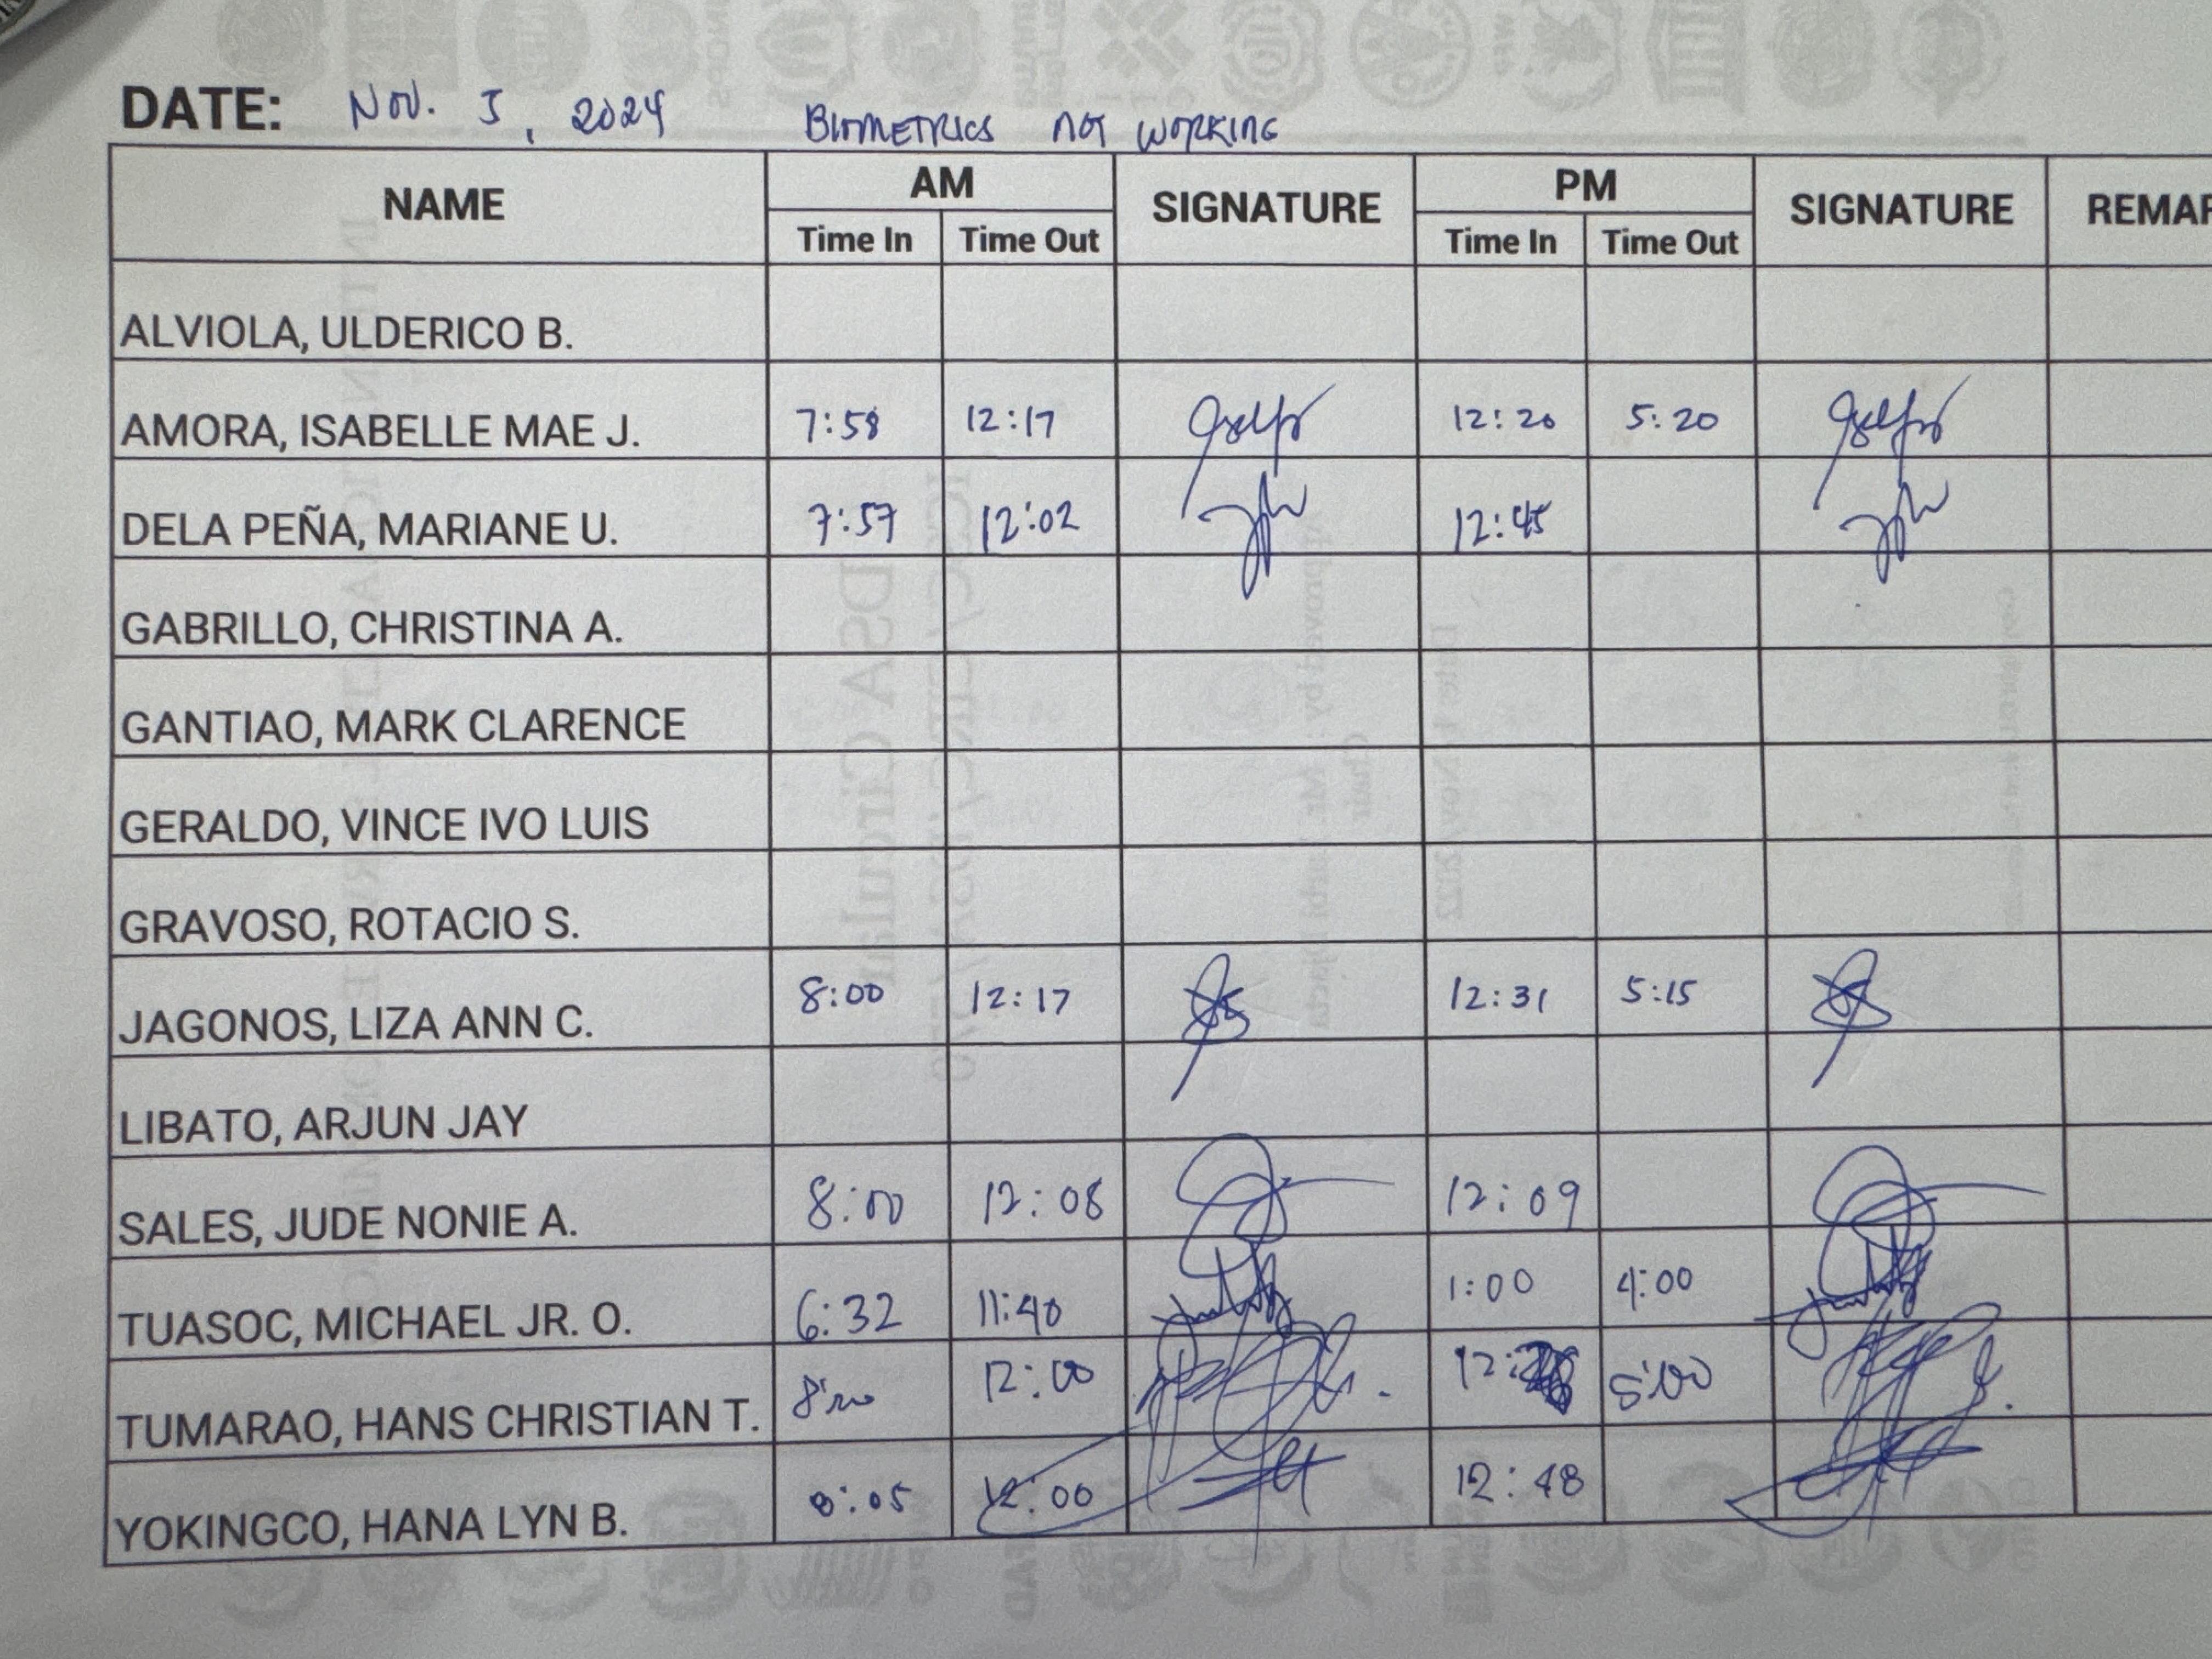 DATE: Nov. 5, 2024 BIOMETRICS NOT WORKING
NAME AM SIGNATURE PM SIGNATURE REMAR
Time In Time Out Time In Time Out
ALVIOLA, ULDERICO B.
AMORA, ISABELLE MAE J. 7:58 12:17 12:20 5:20
DELA PEÑA, MARIANE U. 7:57 12:02 12:45
GABRILLO, CHRISTINA A.
GANTIAO, MARK CLARENCE
GERALDO, VINCE IVO LUIS
GRAVOSO, ROTACIO S.
JAGONOS, LIZA ANN C. 8:00 12:17 12:31 5:15
LIBATO, ARJUN JAY
SALES, JUDE NONIE A. 8:00 12:08 12:09
TUASOC, MICHAEL JR. O. 6:32 11:40 1:00 4:00
TUMARAO, HANS CHRISTIAN T. 8:00 12:00 5:00
YOKINGCO, HANA LYN B. 8:05 12:00 12:48